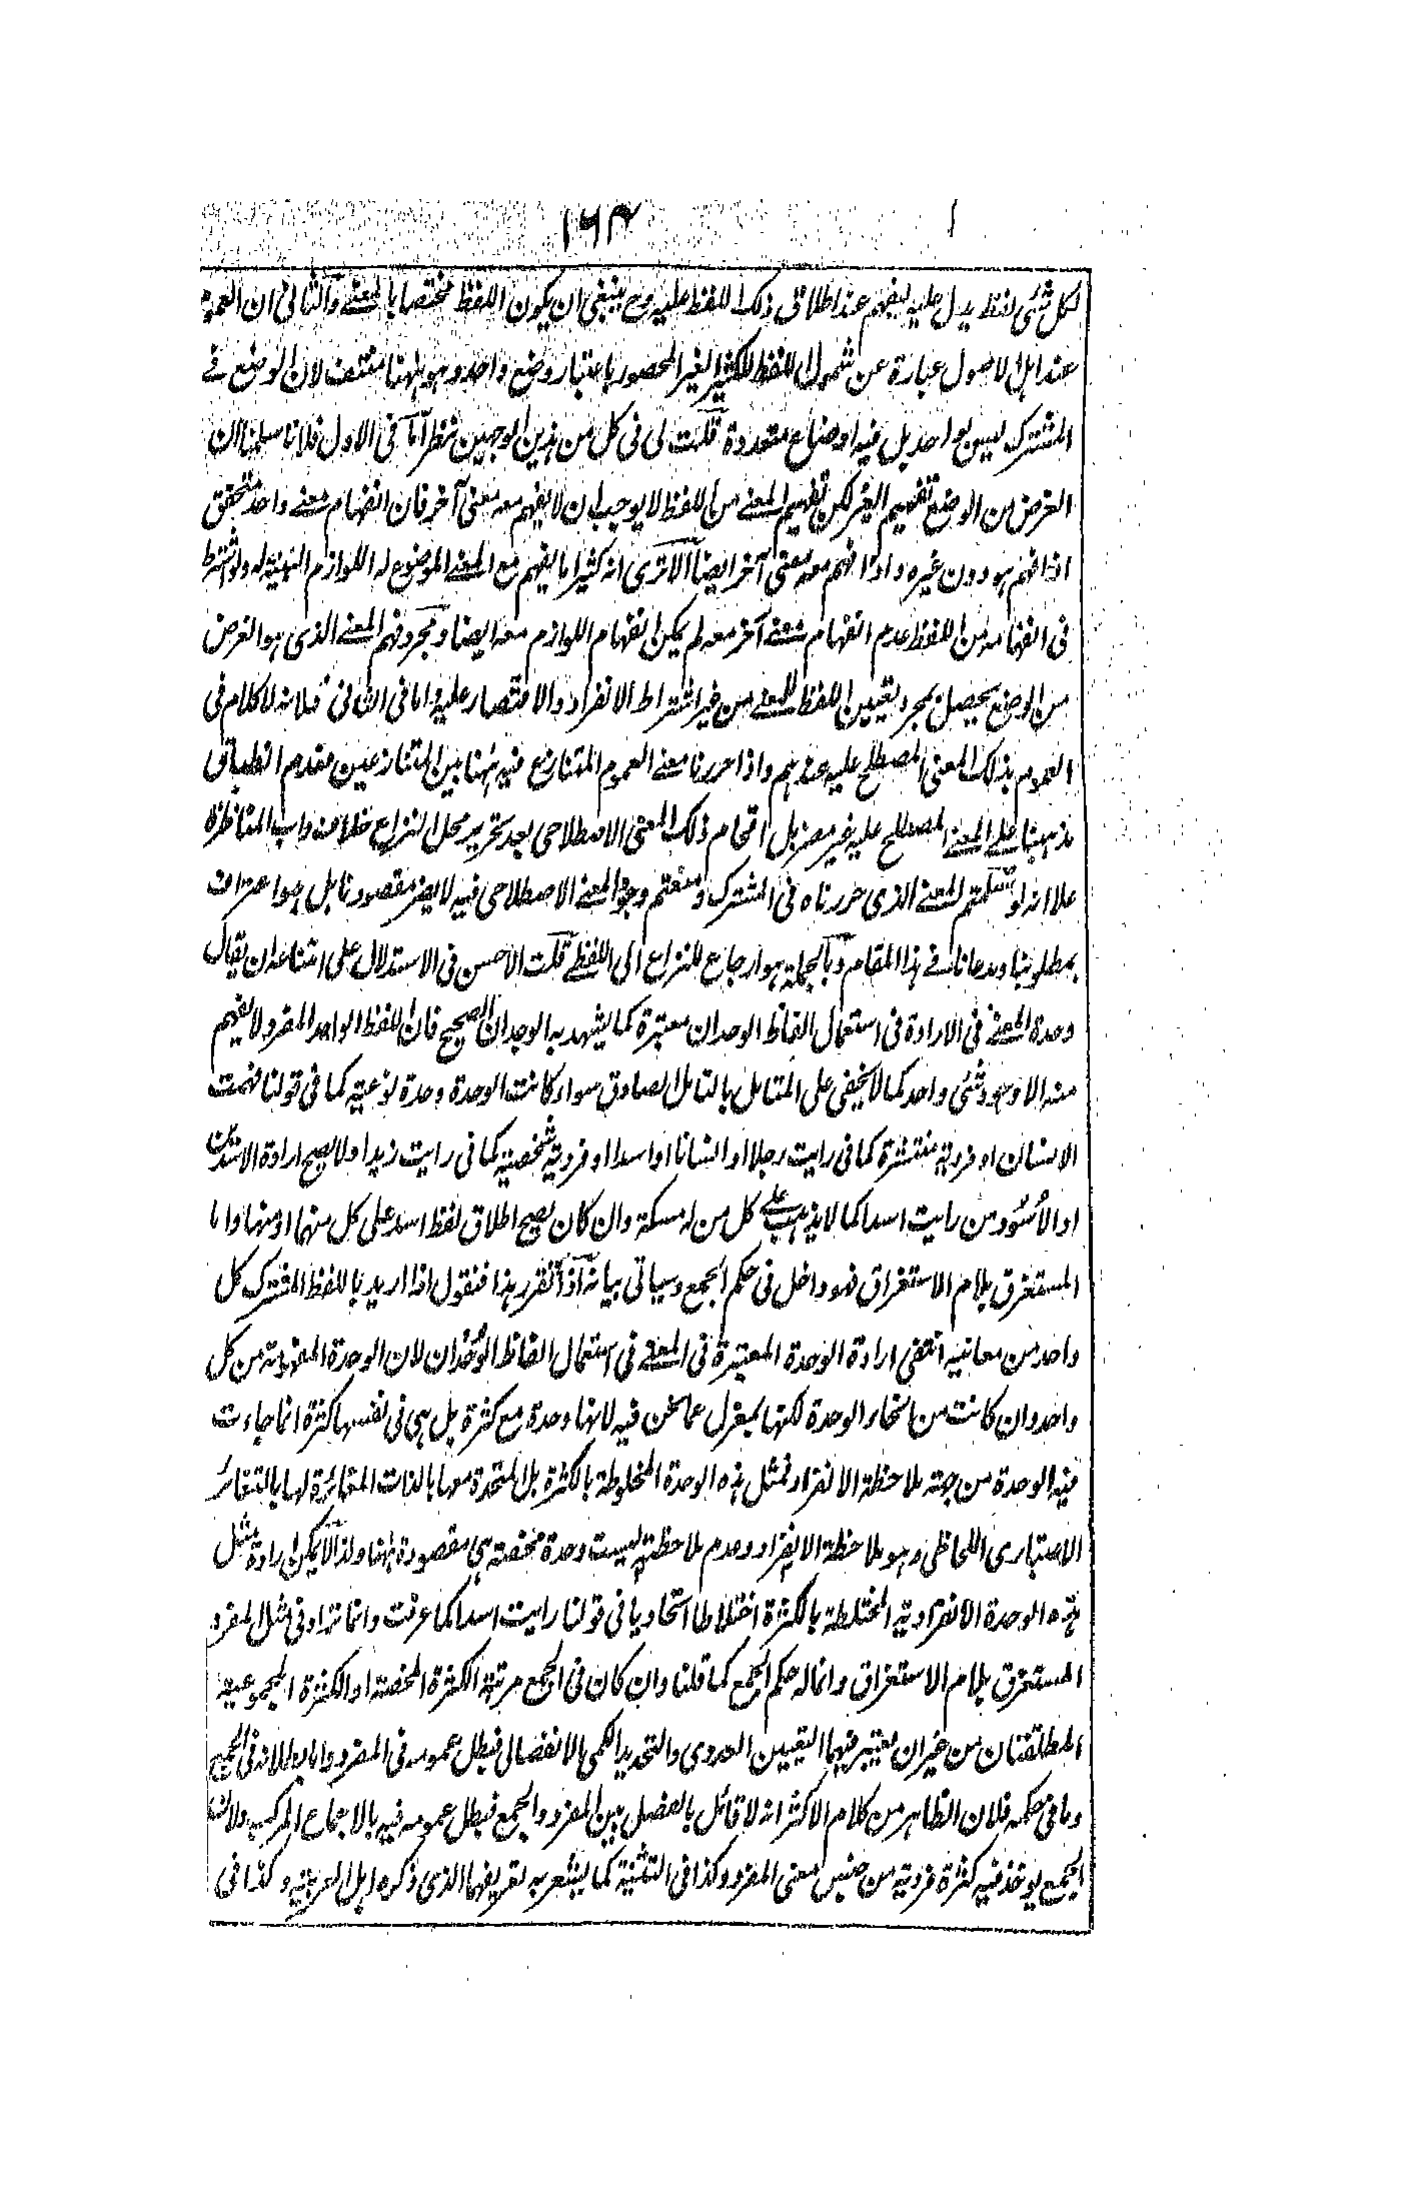 ١٦٤
لكل شئى لفظ يدل عليه ليفهم عند اطلاق ذلك اللفظ عليه وح ينبغى ان يكون اللفظ مختصا بالمعنے والثانى ان العموم
عند اهل الاصول عبارة عن شمول اللفظ للكثير الغير المحصور باعتبار وضع واحد وهو ههنا منتف لان الوضع فے
المشترك ليس بواحد بل فيه اوضاع متعددة قلت لى فى كل من هذين الوجهين نظر اما فى الاول فلانا سلمنا ان
الغرض من الوضع تفهيم الغير لكن تفهيم المعنے من اللفظ لا يوجب ان لا يفهم معه معنى آخر فان انفهام معنے واحد متحقق
اذا فهم هو دون غيره واذا فهم معه معنى آخر ايضا الا ترى انه كثيرا ما يفهم مع المعنے الموضوع له اللوازم الذهنية له ولو اشترط
فى انفهامه من اللفظ عدم انفهام معنے آخر معه لم يكن انفهام اللوازم معه ايضا ومجرد فهم المعنے الذى هو الغرض
من الوضع يحصل بمجرد تعيين اللفظ للمعنے من غير اشتراط الانفراد والاقتصار عليه واما فى الثانى فلانه لا كلام فى
العموم بذلك المعنى المصطلح عليه عندهم واذا حررنا معنے العموم المتنازع فيه ههنا بين المتنازعين مقدم انطباق
مذهبنا على المعنے المصطلح عليه غير مضر بل اقحام ذلك المعنى الاصطلاحى بعد تحرير محل النزاع خلاف داب المناظرة
علا انه لو سلمتم المعنے الذى حررناه فى المشترك ومنعتم وجود المعنے الاصطلاحى فيه لا يضر مقصودنا بل هو اعتراف
بمطلوبنا ومدعانا فے هذا المقام وبالجملة هو ارجاع للنزاع الى اللفظے قلت الاحسن فى الاستدلال على امتناعه ان يقال
وحدة المعنے فى الارادة فى استعمال الفاظ الوحدان معتبرة كما يشهد به الوجدان الصحيح فان اللفظ الواحد المفرد لا يفهم
منه الا وجود شئى واحد كما لا يخفى على المتامل بالتامل الصادق سواء كانت الوحدة وحدة نوعية كما فى قولنا فهمت
الانسان او فردية منتشرة كما فى رايت رجلا او انسانا او اسدا او فردية شخصية كما فى رايت زيدا ولا يصح ارادة الاسدين
او الأسود من رايت اسدا كما لا يذهب على كل من له مسكة وان كان يصح اطلاق لفظ اسد على كل منهما او منها واما
المستغرق بلام الاستغراق فهو داخل فى حكم الجمع وسياتى بيانه اذا تقرر هذا فنقول اذا اريد باللفظ المشترك كل
واحد من معانيه انتفى ارادة الوحدة المعتبرة فى المعنے فى استعمال الفاظ الوحدان لان الوحدة المفهومة من كل
واحد وان كانت من انحاء الوحدة لكنها بمعزل عما نحن فيه لانها وحدة مع كثرة بل هى فى نفسها كثرة انما جاءت
فيه الوحدة من جهة ملاحظة الانفراد فمثل هذه الوحدة المخلوطة بالكثرة بل المتحدة معها بالذات المغائرة لها بالتغائر
الاعتبارى اللحاظى وهو ملاحظة الانفراد وعدم ملاحظته ليست وحدة محضة هى مقصودة ههنا ولذا لا يمكن ارادة مثل
هذه الوحدة الانفرادية المختلطة بالكثرة اختلاطا اتحاديا فى قولنا رايت اسدا كما عرفت وانما تراد فى امثال المفرد
المستغرق بلام الاستغراق وانما له حكم الجمع كما قلنا وان كان فى الجمع مرتبة الكثرة المحضة او الكثرة المجموعية
المطلقتان من غير ان يعتبر فيهما التعيين العددى والتحديد الكمى الانفصالى فبطل عمومه فى المفرد واما بطلانه فى الجمع
وما فى حكمه فلان الظاهر من كلام الاكثر انه لا قائل بالفصل بين المفرد والجمع فبطل عمومه فيه بالاجماع المركب ولان
الجمع يوخذ فيه كثرة فردية من جنس معنى المفرد وكذا فى التثنية كما يشعر به تعريفهما الذى ذكره اهل العربية وكذا فى